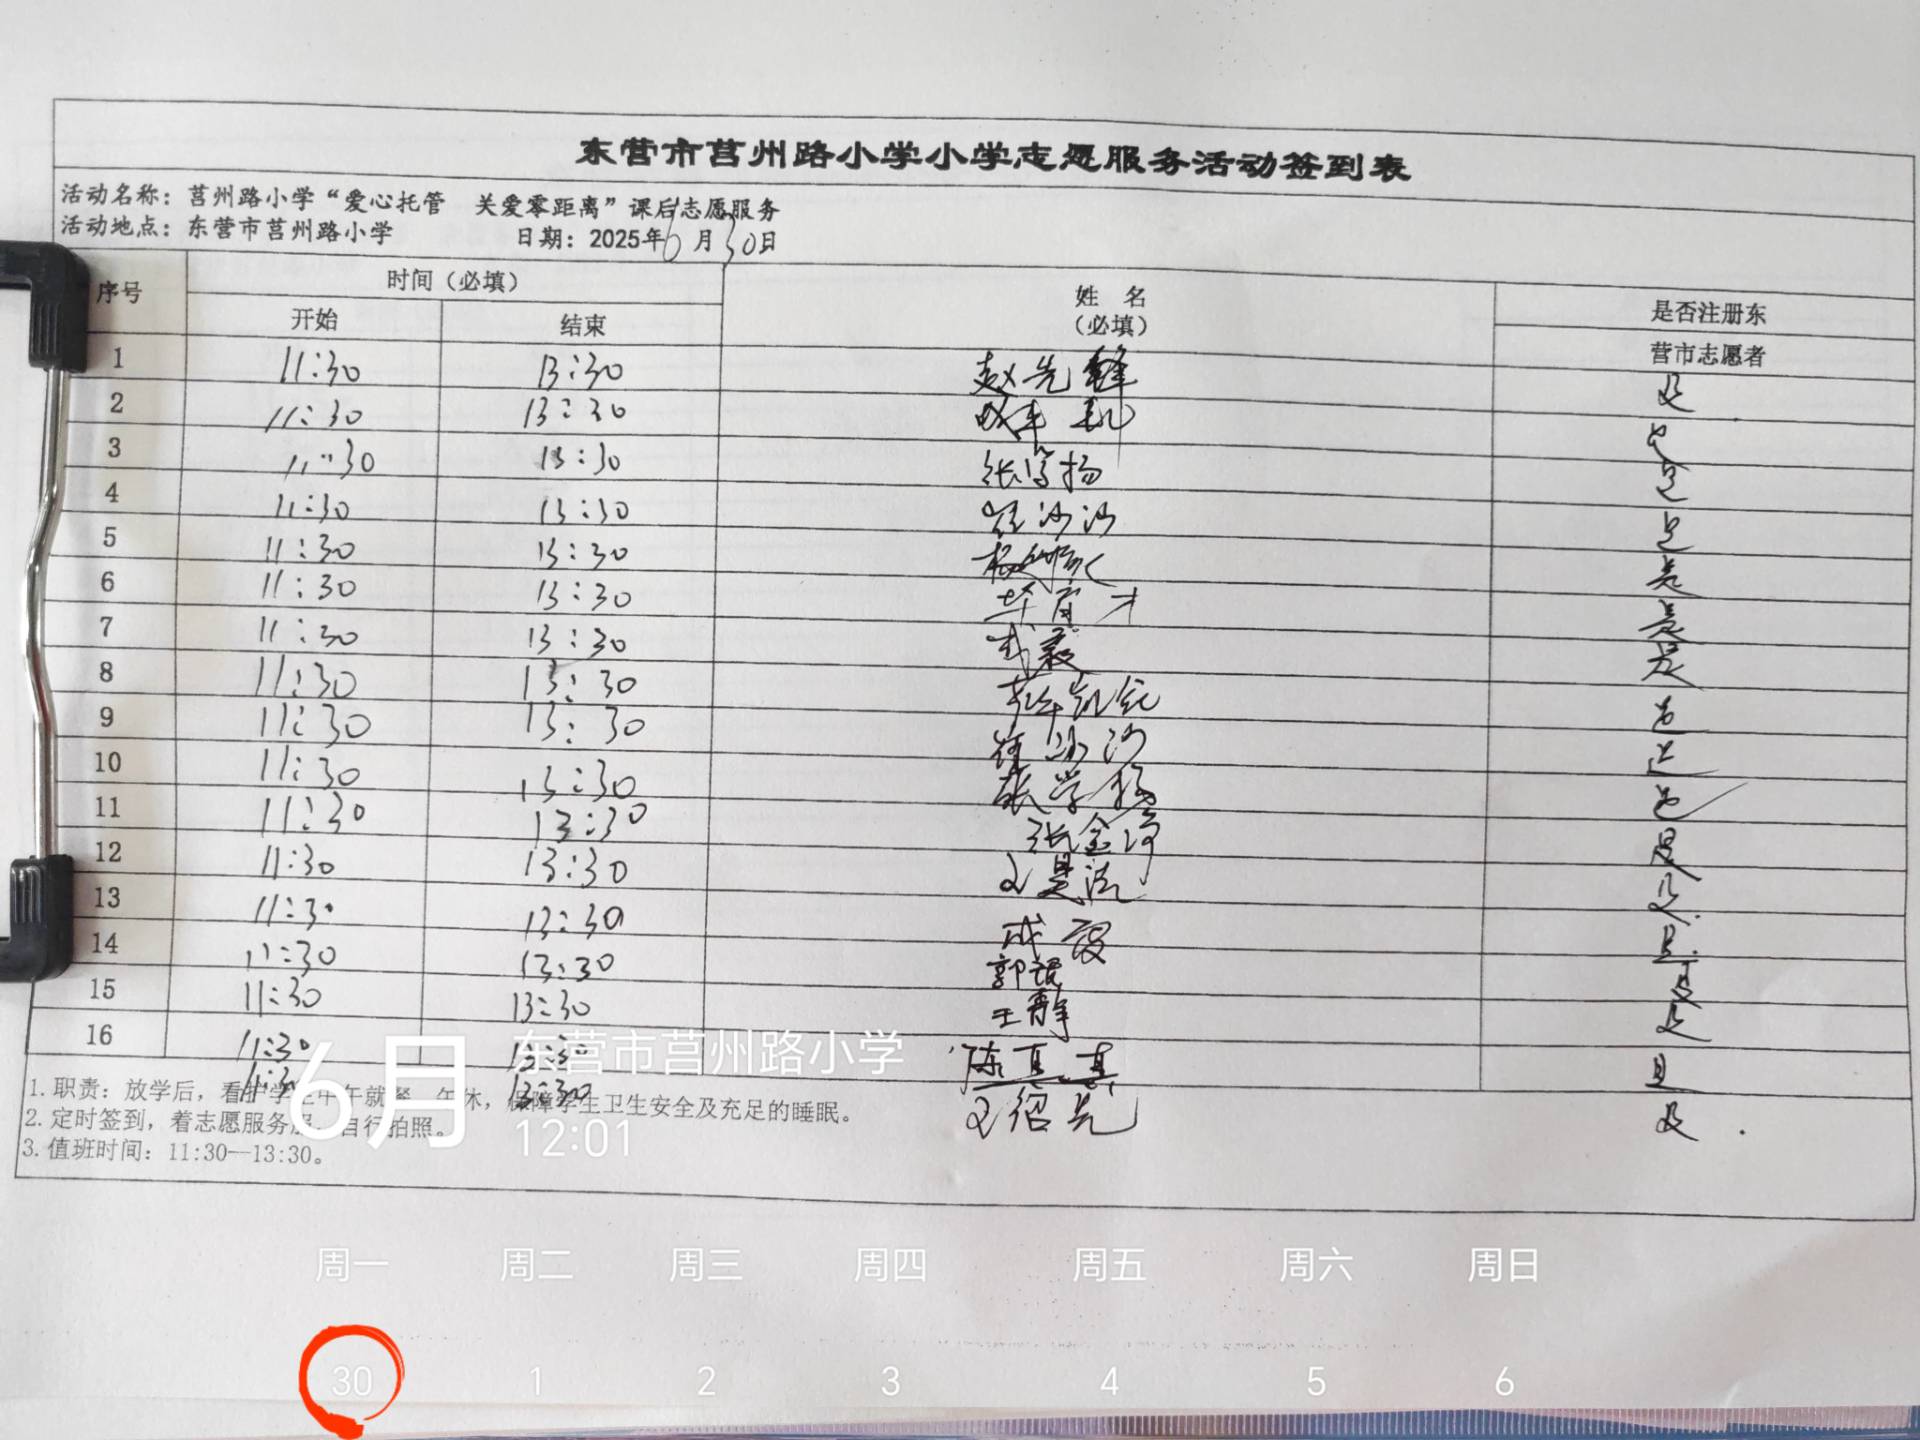 东营市莒州路小学小学志愿服务活动签到表
活动名称：莒州路小学“爱心托管 关爱零距离”课后志愿服务
活动地点：东营市莒州路小学 日期：2025年6月30日
序号 时间（必填） 姓 名（必填） 是否注册东营市志愿者
开始 结束
1 11:30 13:30 赵先锋 是
2 11:30 13:30 是
3 11:30 13:30 张学扬 是
4 11:30 13:30 沙沙 是
5 11:30 13:30 是
6 11:30 13:30 是
7 11:30 13:30 武 是
8 11:30 13:30 是
9 11:30 13:30 沙沙 是
10 11:30 13:30 张学扬 是
11 11:30 13:30 张金 是
12 11:30 13:30 是
13 11:30 13:30 成 是
14 11:30 13:30 郭 是
15 11:30 13:30 王静 是
16 11:30 13:30 陈 是
11:30 13:30 是
1.职责：放学后，看护学生中午就餐、午休，保障学生卫生安全及充足的睡眠。
2.定时签到，着志愿服务服，自行拍照。
3.值班时间：11:30—13:30。
6月
东营市莒州路小学
12:01
周一 周二 周三 周四 周五 周六 周日
30 1 2 3 4 5 6